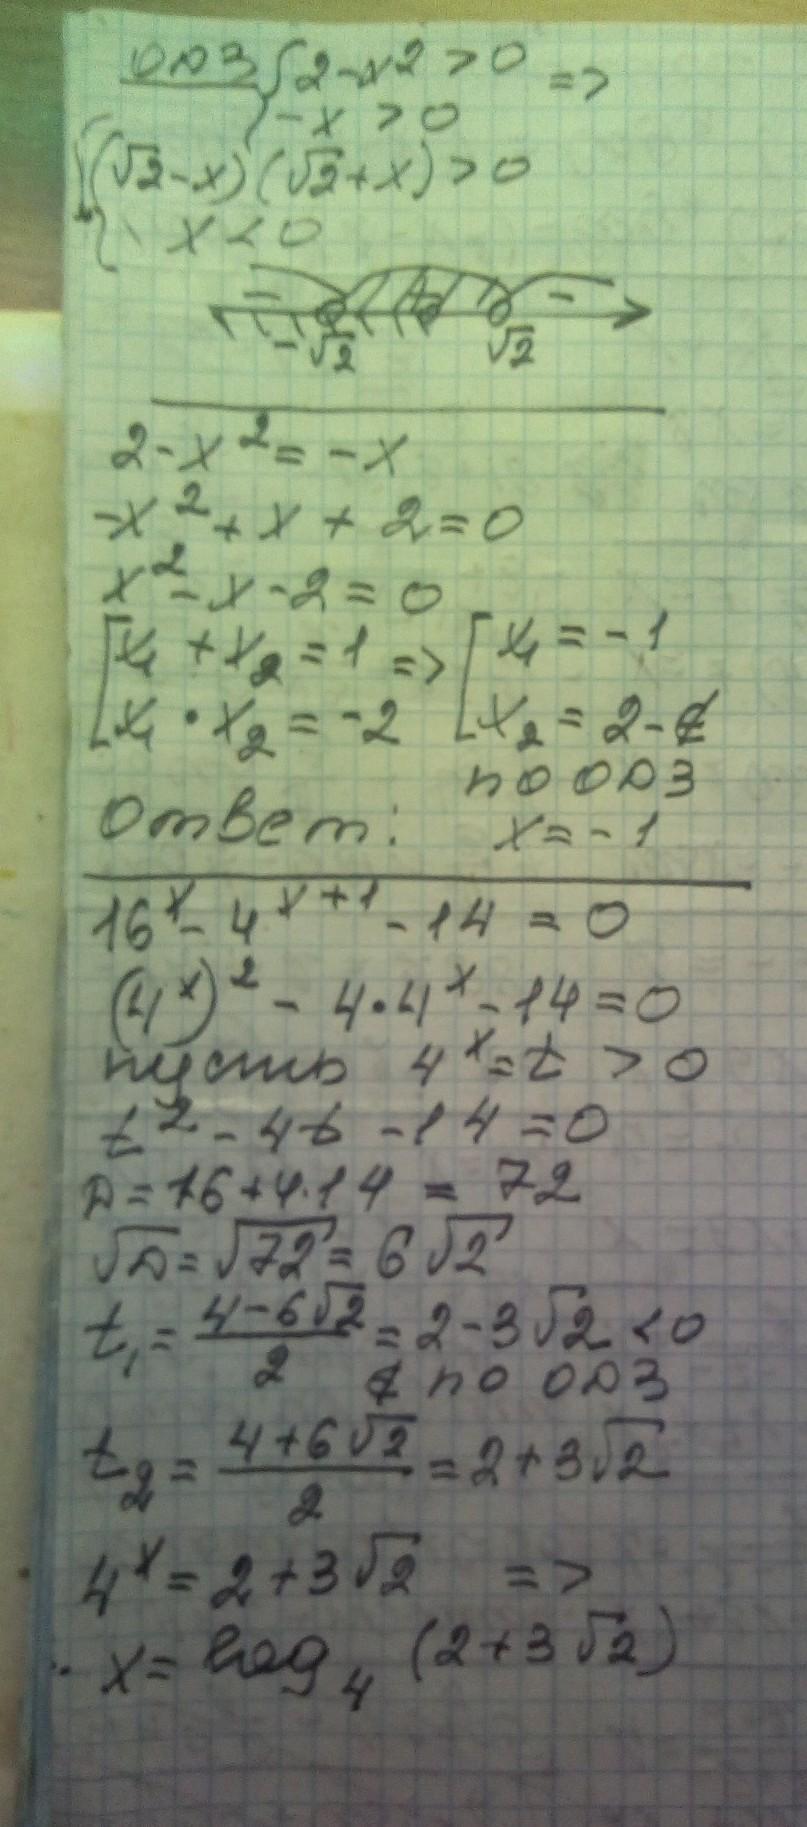 ОДЗ { 2-x² > 0 =>
-x > 0
{ (√2-x)(√2+x) > 0
x < 0
- + -
-√2 √2
2-x² = -x
-x² + x + 2 = 0
x² - x - 2 = 0
[ x₁ + x₂ = 1 => [ x₁ = -1
x₁ · x₂ = -2 x₂ = 2 - ∉
по ОДЗ
Ответ: x = -1
16ˣ - 4ˣ⁺¹ - 14 = 0
(4ˣ)² - 4·4ˣ - 14 = 0
пусть 4ˣ = t > 0
t² - 4t - 14 = 0
D = 16 + 4·14 = 72
√D = √72 = 6√2
t₁ = (4-6√2)/2 = 2-3√2 < 0
∉ по ОДЗ
t₂ = (4+6√2)/2 = 2+3√2
4ˣ = 2+3√2 =>
x = log₄ (2+3√2)